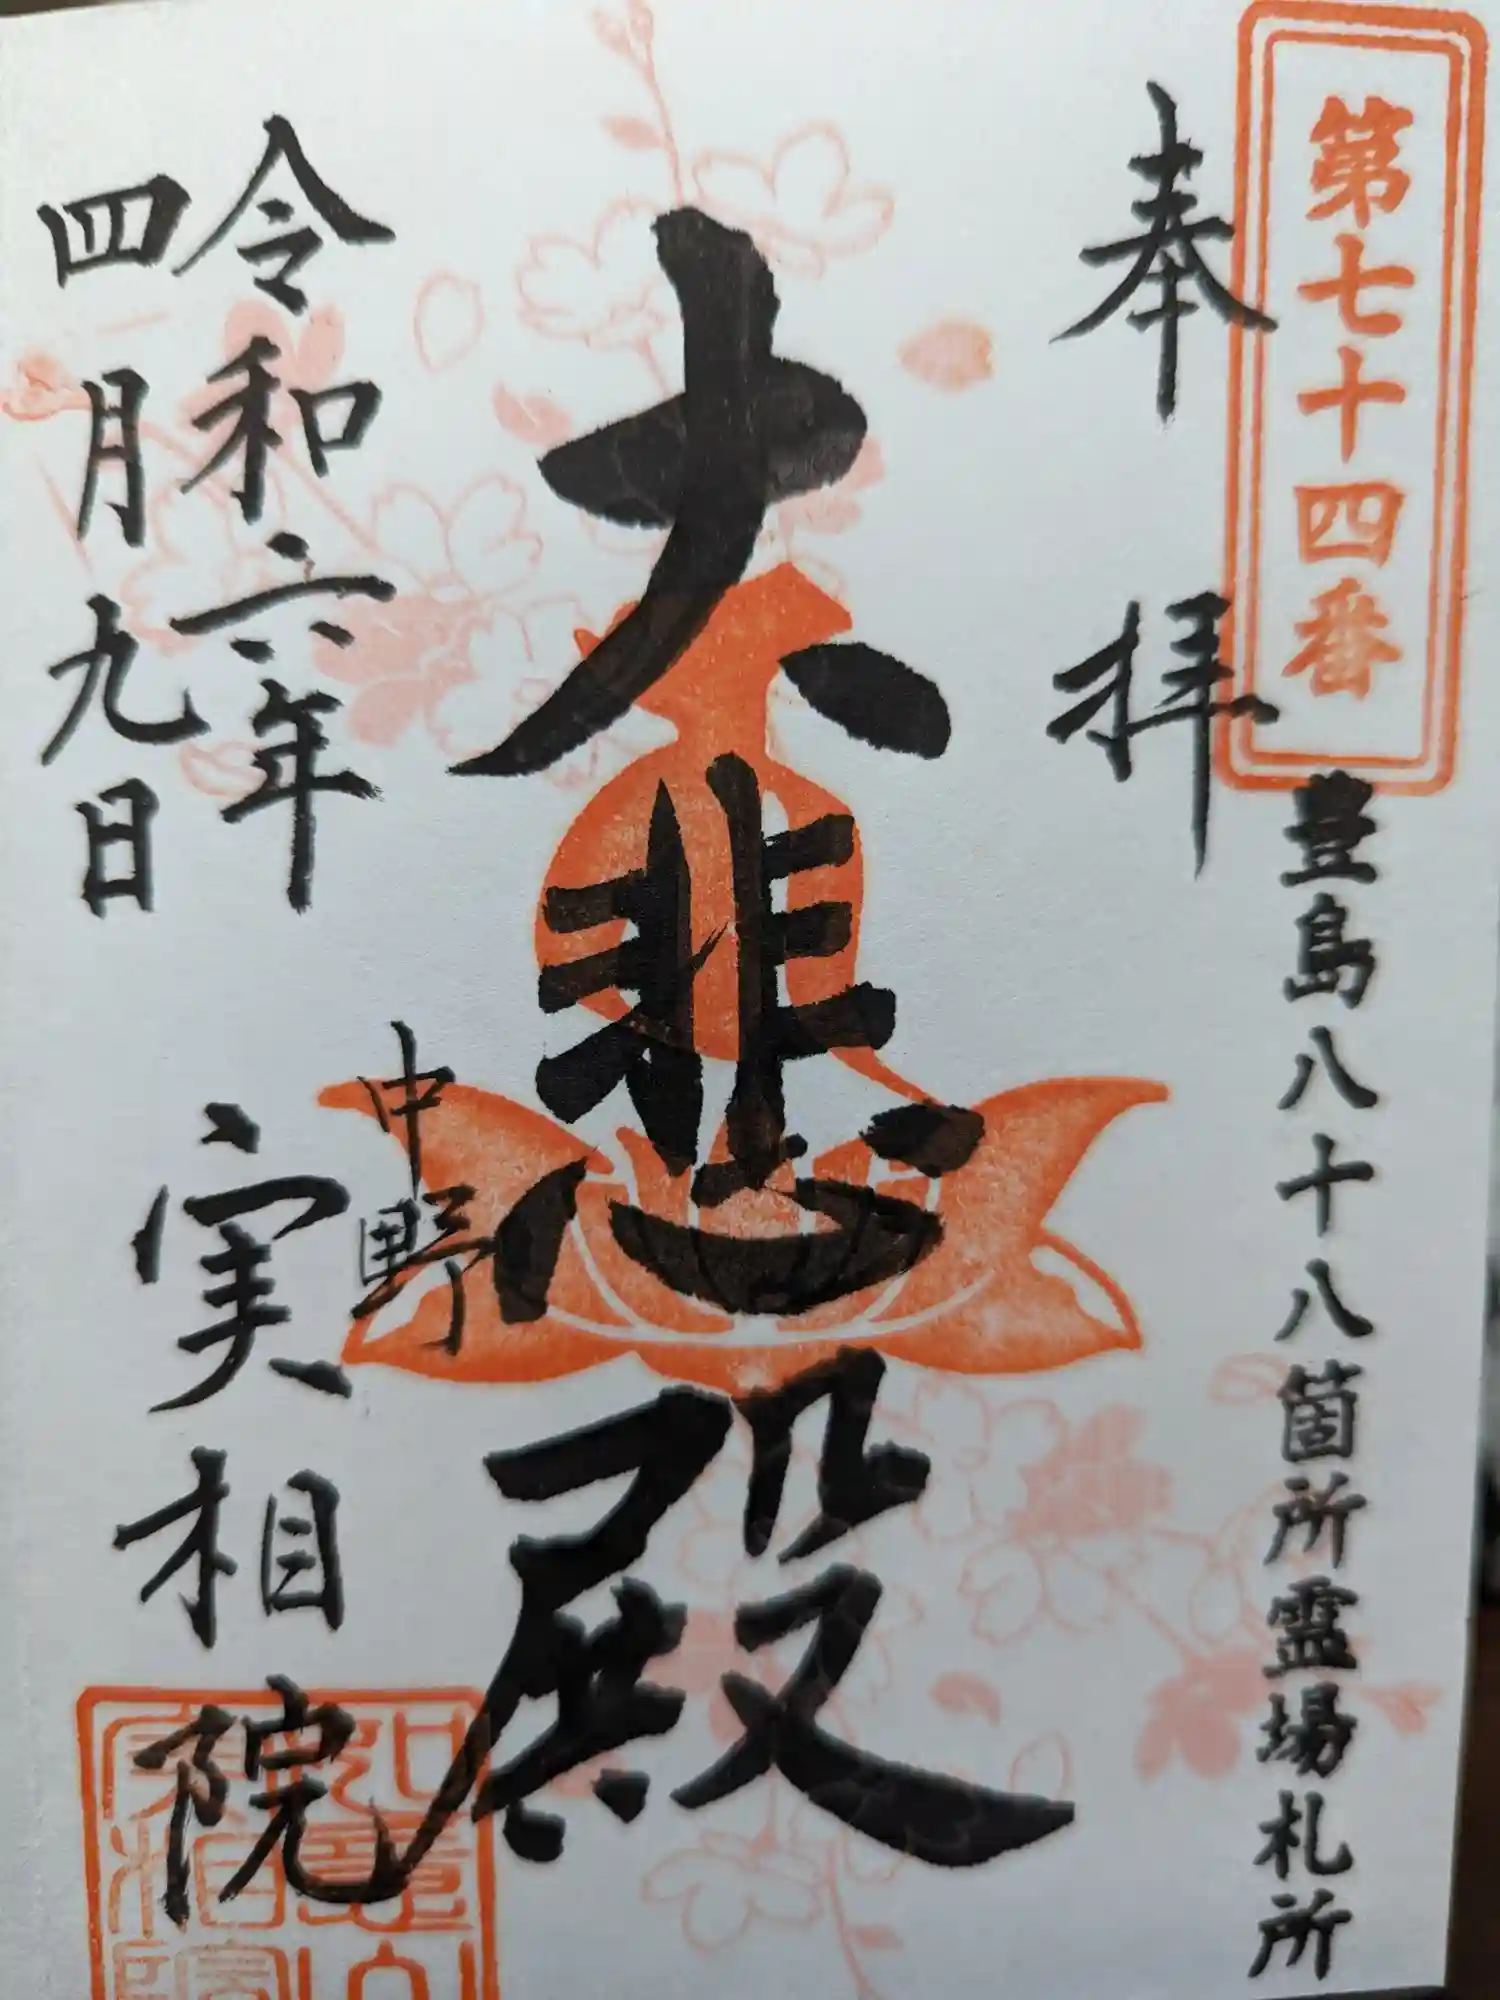 第七十四番
豊島八十八箇所霊場札所
奉拝
大悲殿
中野
令和六年
四月九日
実相院